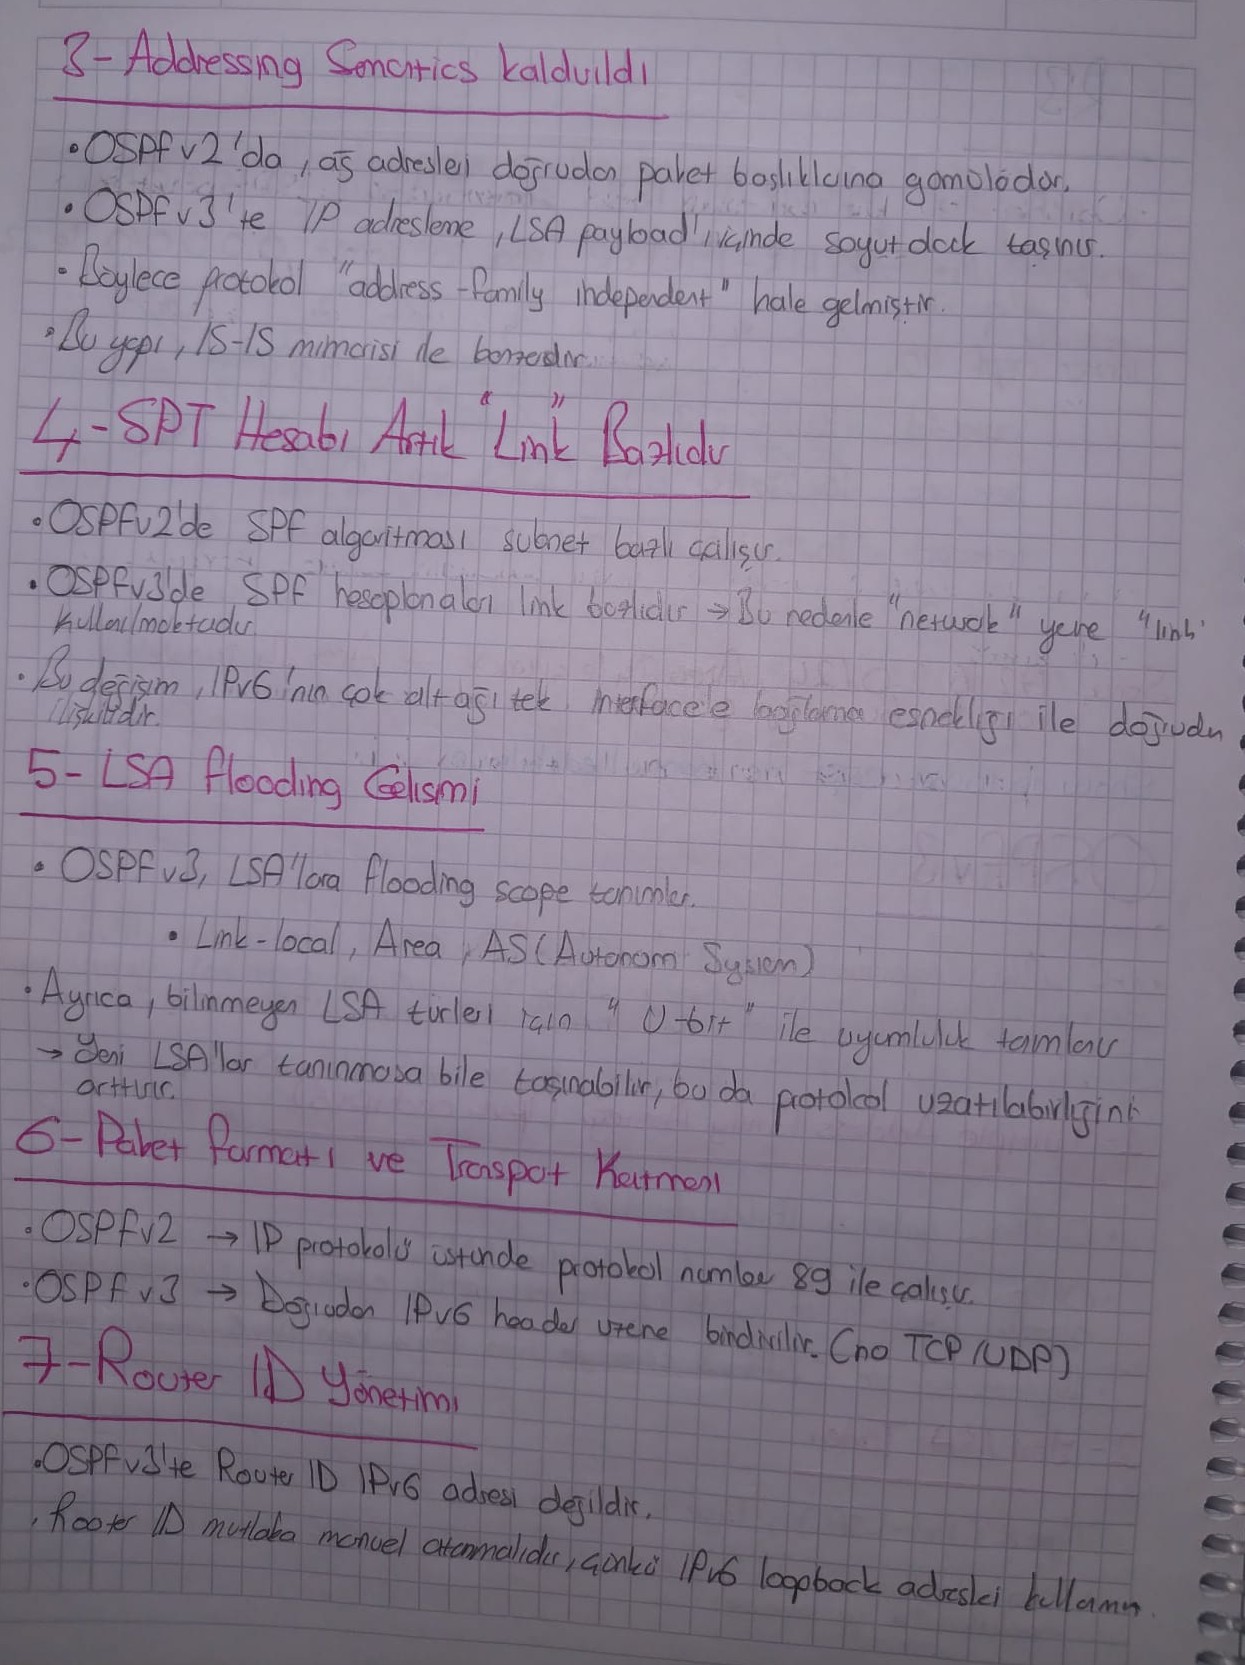 3- Addressing Semantics kaldırıldı
• OSPFv2'da, ağ adresleri doğrudan paket başlıklarına gömülüdür.
• OSPFv3'te IP adresleme, LSA payload'ı içinde soyut dack taşınır.
• Böylece protokol "address-family independent" hale gelmiştir.
• Bu yapı, IS-IS mimarisi ile benzerdir.
4- SPT Hesabı Artık "Link" Bazlıdır
• OSPFv2'de SPF algoritması subnet bazlı çalışır.
• OSPFv3'de SPF hesaplamaları link bazlıdır → Bu nedenle "network" yerine "link"
kullanılmaktadır
• Bu değişim, IPv6'nın çok alt ağı tek interface'e bağlama esnekliği ile doğrudan
ilişkilidir.
5- LSA flooding Gelişimi
• OSPFv3, LSA'lara flooding scope tanımlar.
• Link-local, Area, AS (Autonom System)
• Ayrıca, bilinmeyen LSA türleri için "U-bit" ile uyumluluk tanımlanır
→ Yeni LSA'lar tanınmasa bile taşınabilir, bu da protokol uzatılabilirliğini
arttırır.
6- Paket formatı ve Transport Katmanı
• OSPFv2 → IP protokolü üstünde protokol number 89 ile çalışır.
• OSPFv3 → Doğrudan IPv6 header üzerine bindirilir. (no TCP/UDP)
7- Router ID Yönetimi
• OSPFv3'te Router ID IPv6 adresi değildir.
• Router ID mutlaka manuel atanmalıdır, çünkü IPv6 loopback adresleri kullanmaz.